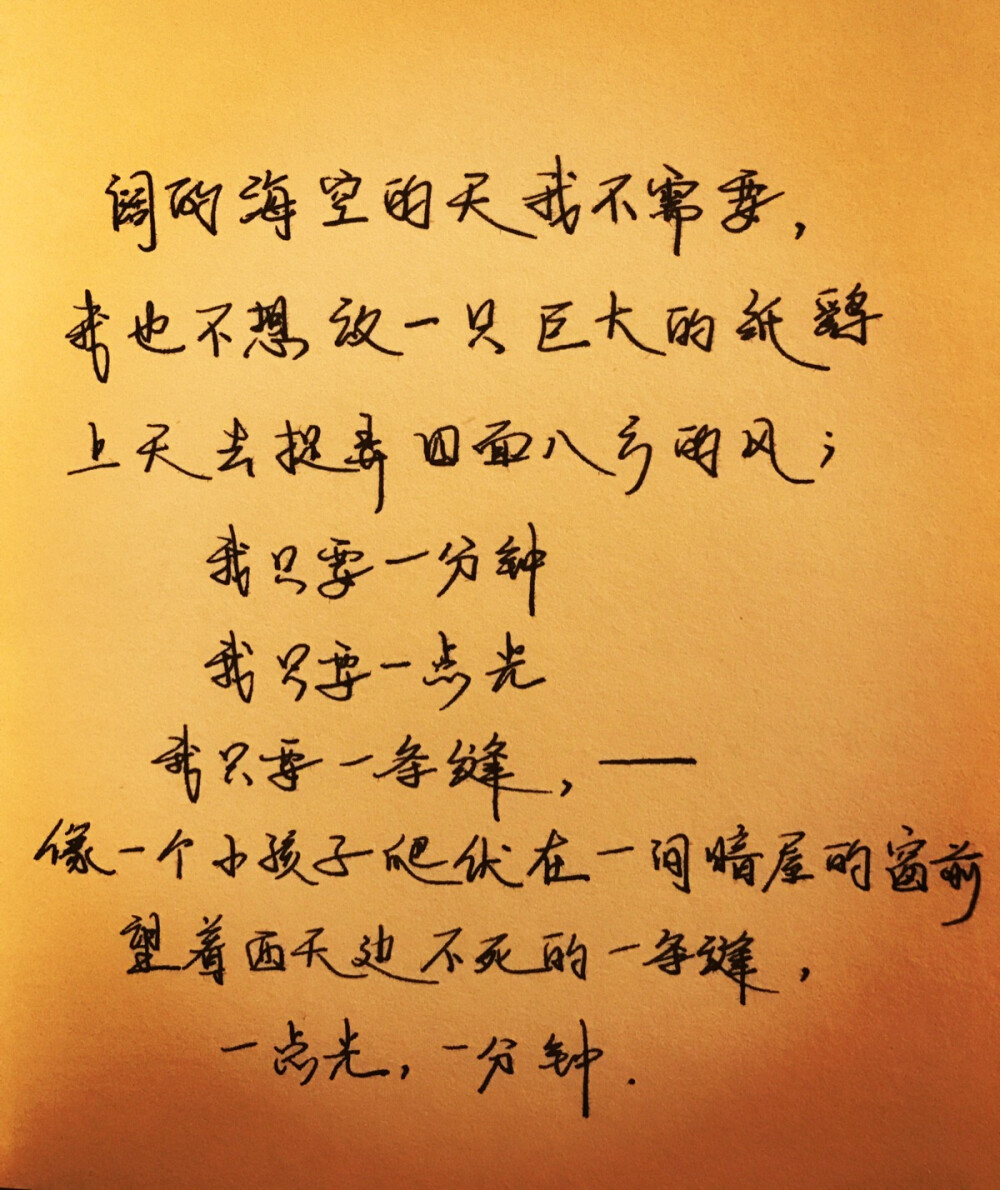 阔的海空的天我不需要,
我也不想放一只巨大的纸鹞
上天去捉弄四面八方的风;
我只要一分钟
我只要一点光
我只要一条缝,——
像一个小孩子爬伏在一间暗屋的窗前
望着西天边不死的一条缝,
一点光,一分钟.